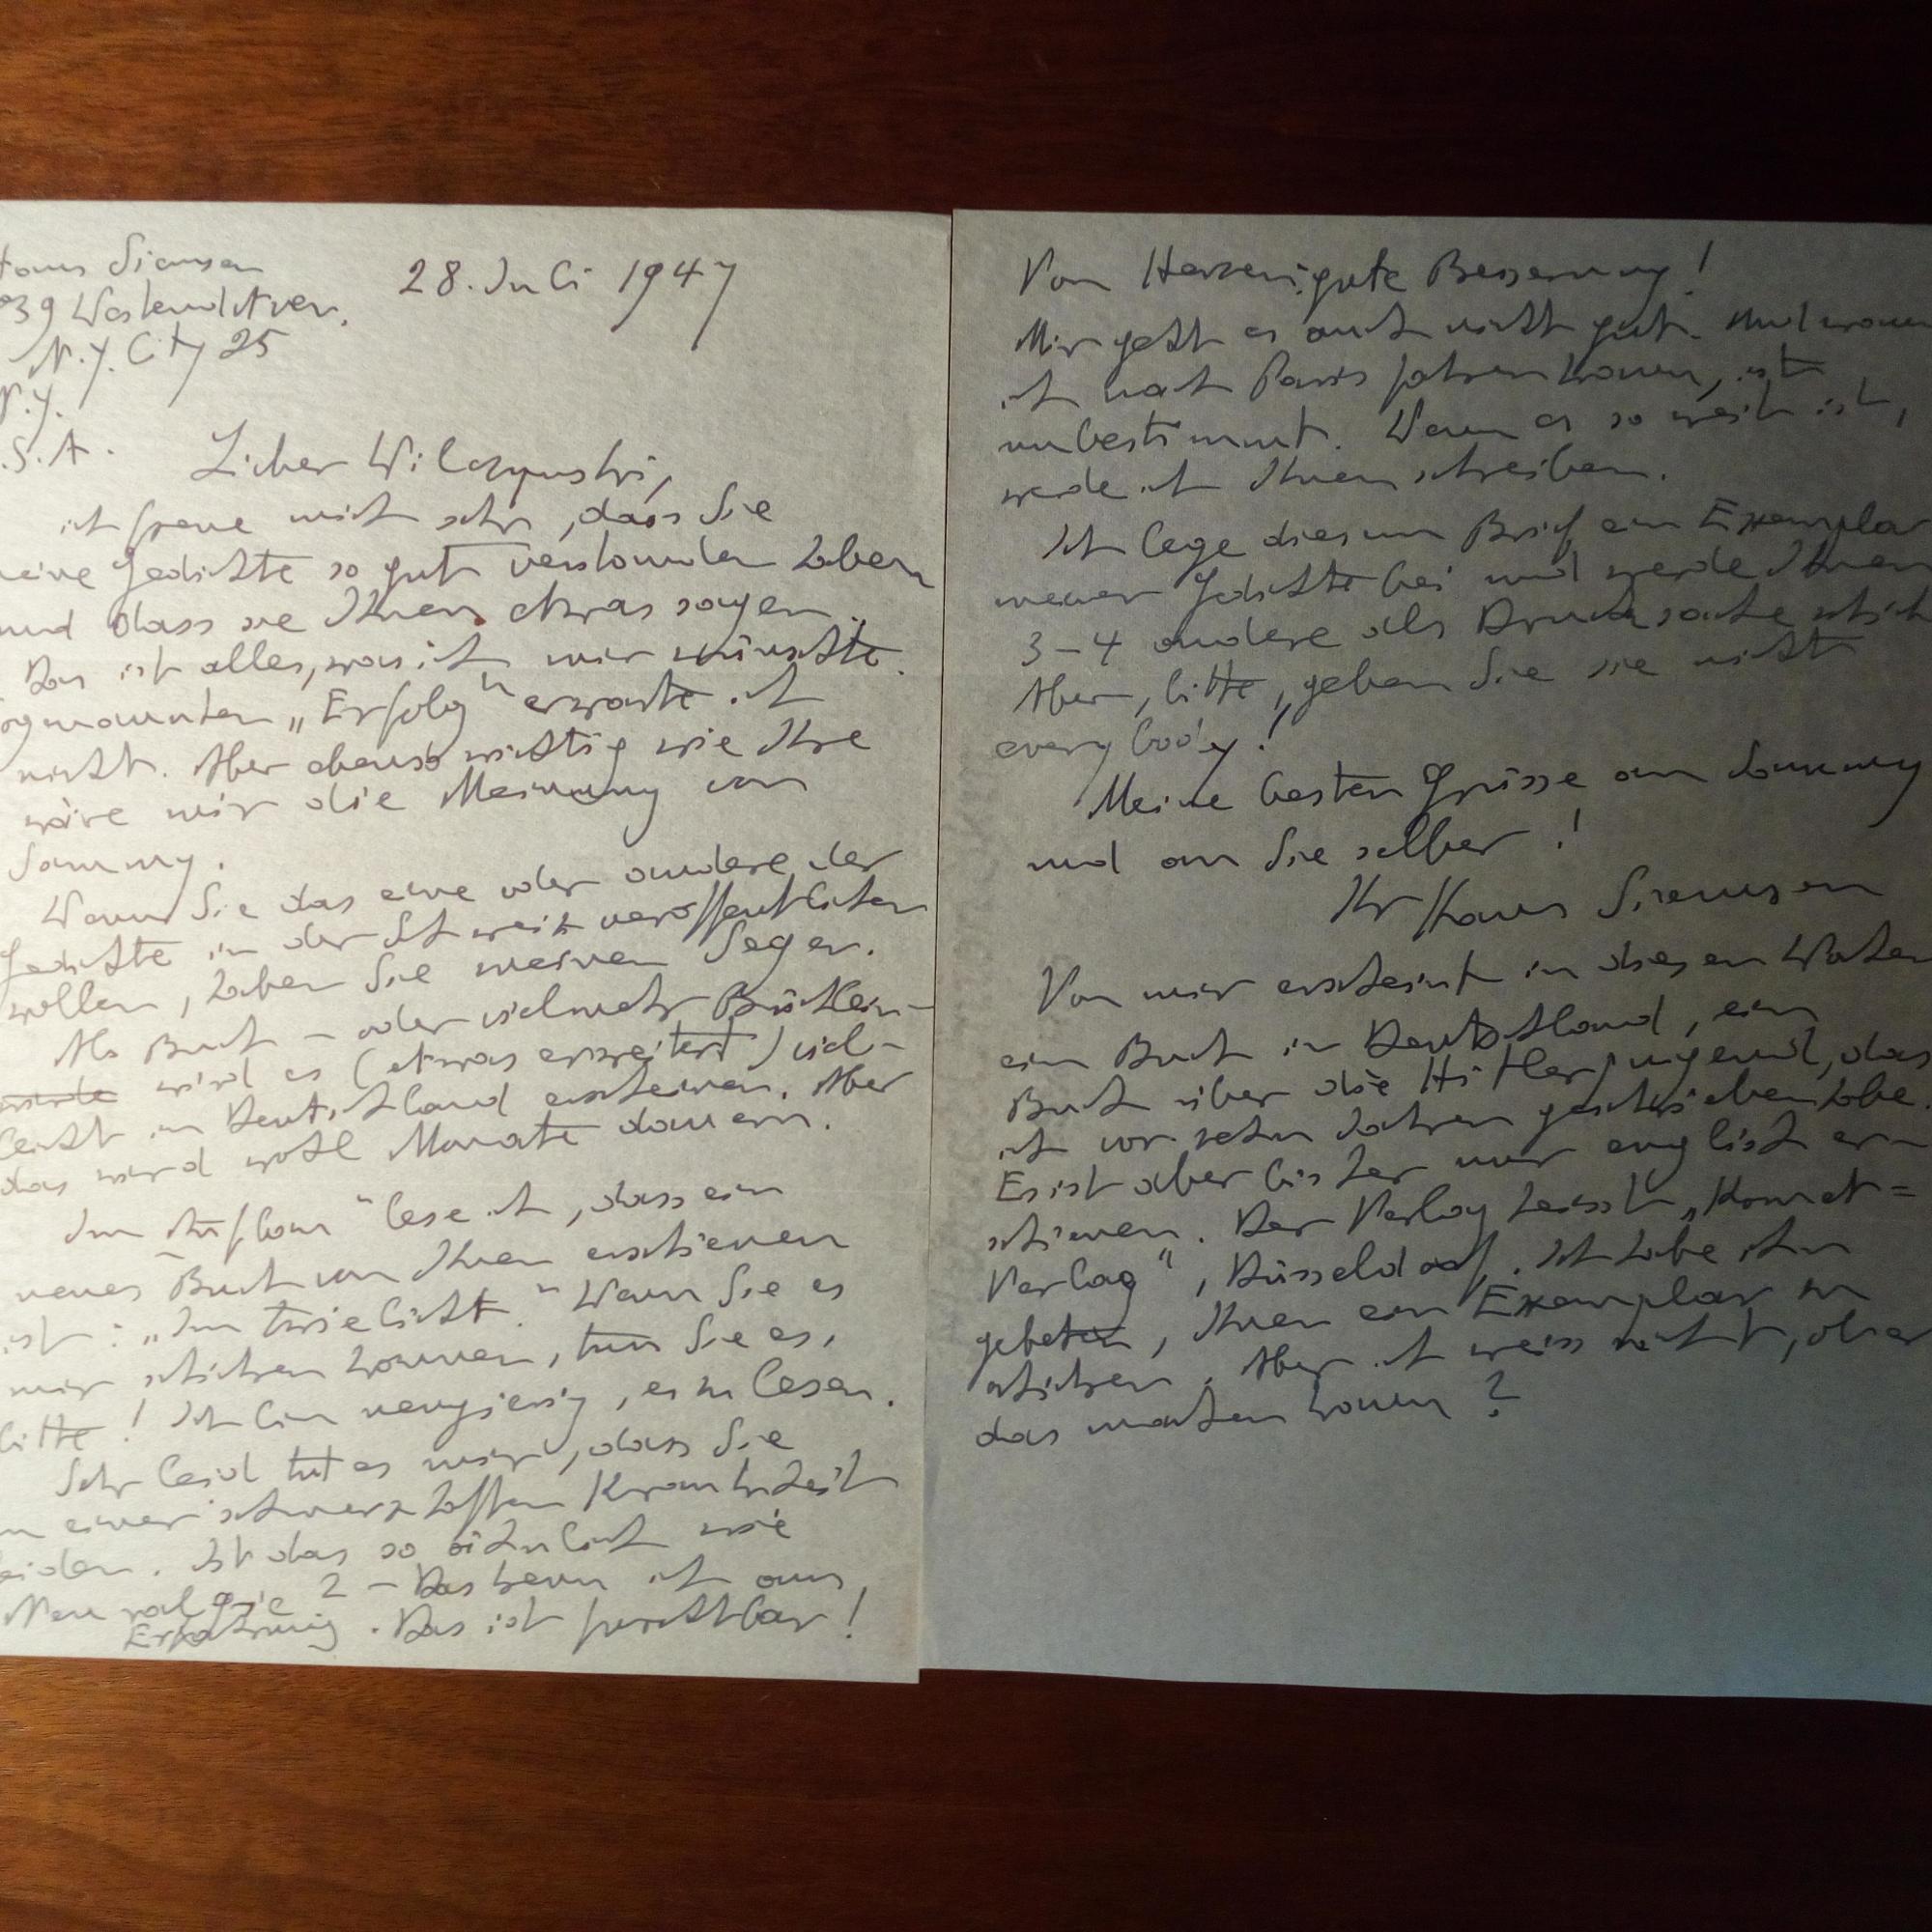 Hans Siemsen
939 Westend Aven.
N.Y. City 25
N.Y.
U.S.A.
28. Juli 1947
Lieber Wilczynski,
ich freue mich sehr, dass Sie
meine Gedichte so gut verstanden haben
und dass sie Ihnen etwas sagen.
Das ist alles, was ich mir wünschte.
Sogenannten „Erfolg" erwarte ich
nicht. Aber ebenso wichtig wie Ihre
wäre mir die Meinung von
Sammy.
Wenn Sie das eine oder andere der
Gedichte in der Schweiz veröffentlichen
wollen, haben Sie meinen Segen.
Als Buch – oder vielmehr Büchlein –
würde wird es (etwas erweitert) viel-
leicht in Deutschland erscheinen. Aber
das wird wohl Monate dauern.
Im „Aufbau" lese ich, dass ein
neues Buch von Ihnen erschienen
ist: „Im Zwielicht." Wenn Sie es
mir schicken können, tun Sie es,
bitte! Ich bin neugierig, es zu lesen.
Sehr leid tut es mir, dass Sie
an einer schmerzhaften Krankheit
leiden. Ist das so ähnlich wie
Neuralgie? – Das kenn ich aus
Erfahrung. Das ist furchtbar!
Von Herzen: gute Besserung!
Mir geht es auch nicht gut. Und wann
ich nach Paris fahren kann, ist
unbestimmt. Wenn es so weit ist,
werde ich Ihnen schreiben.
Ich lege diesem Brief ein Exemplar
meiner Gedichte bei und werde Ihnen
3–4 andere als Drucksache schicken
Aber, bitte, geben Sie sie nicht
everybody!
Meine besten Grüsse an Sammy
und an Sie selber!
Ihr Hans Siemsen
Von mir erscheint in diesen Wochen
ein Buch in Deutschland, ein
Buch über die Hitlerjugend, das
ich vor zehn Jahren geschrieben habe.
Es ist aber bisher nur englisch er-
schienen. Der Verlag heisst „Komet=
Verlag", Düsseldorf. Ich habe ihn
gebeten, Ihnen ein Exemplar zu
schicken. Aber ich weiss nicht, ob er
das machen kann?